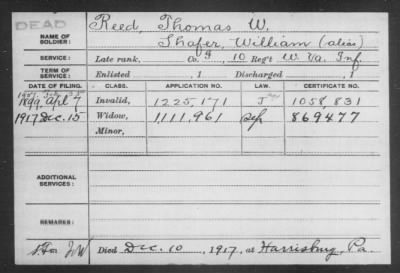 DEAD
NAME OF SOLDIER: Reed, Thomas W.
Shafer, William (alias)
SERVICE: Late rank, Co. G, 10 Reg't W. Va. Inf.
TERM OF SERVICE: Enlisted , 1 Discharged , 1
DATE OF FILING. CLASS. APPLICATION NO. LAW. CERTIFICATE NO.
1899, Apl 7 Invalid, 1225,171 1058,831
1917 Dec. 15 Widow, 1,111,961 869477
Minor,
ADDITIONAL SERVICES:
REMARKS:
Died Dec. 10, 1917, at Harrisburg, Pa.